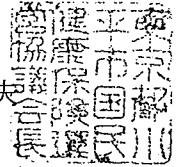 東京都小
平市国民
健康保険運
営協議会長
夫